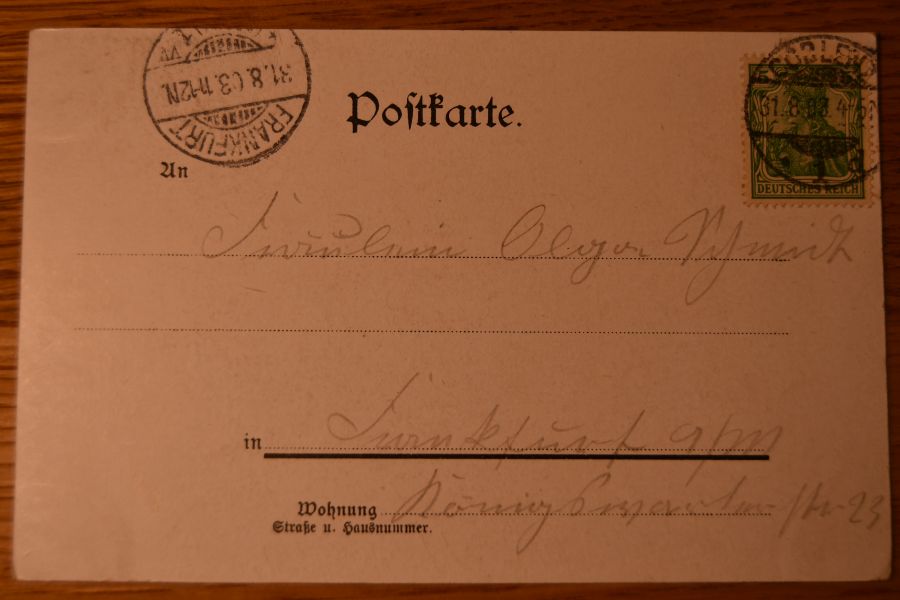 Postkarte.
FRANKFURT
31.8.03.11-12N.
COBLENZ
31.8.03 4-5N
1 d
DEUTSCHES REICH
An
Fräulein Olga Schmidt
in Frankfurt a/M
Wohnung Königswarterstr 23
Straße u. Hausnummer.